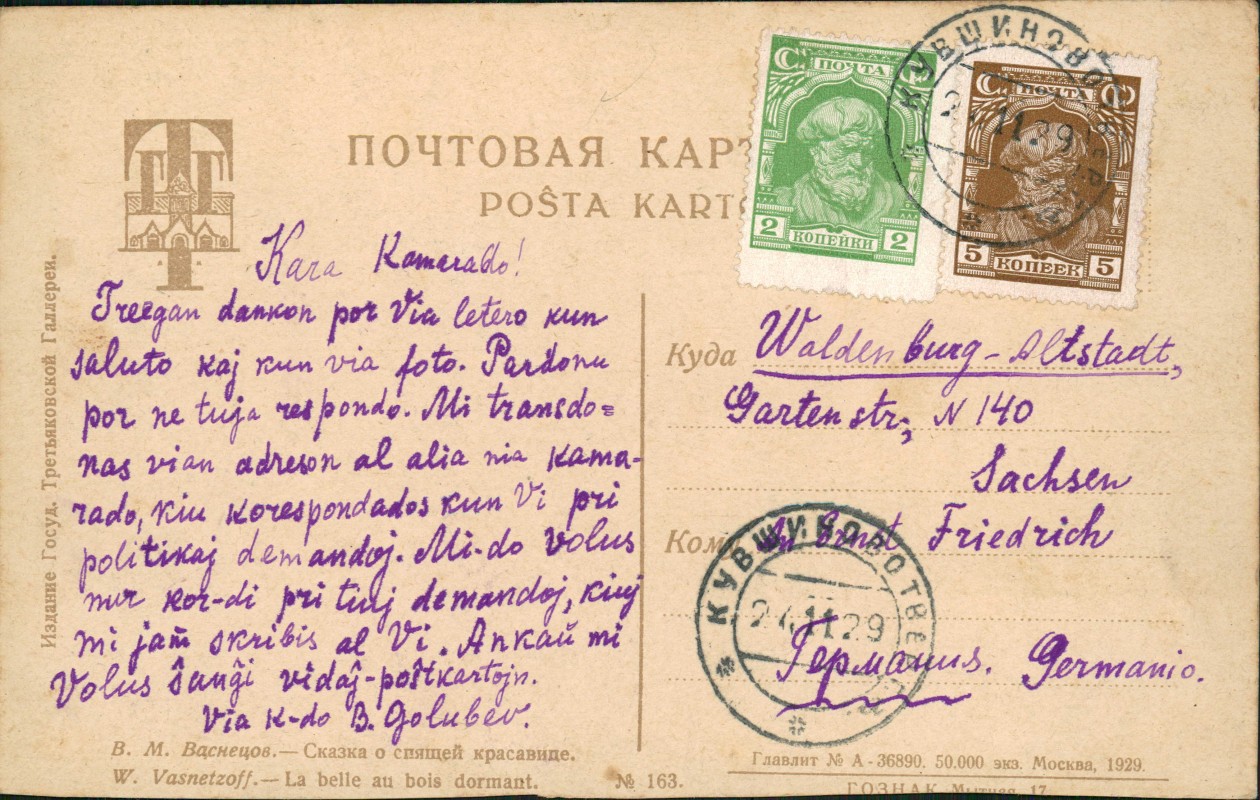 ПОЧТОВАЯ КАР
POŜTA KARTO
ТГГ
Издание Госуд. Третьяковской Галлереи.
Kara Kamarado!
Treegan dankon por Via letero kun
saluto kaj kun via foto. Pardonu
por ne tuja respondo. Mi transdo=
nas vian adreson al alia nia kama-
rado, kiu korespondados kun Vi pri
politikaj demandoj. Mi-do volus
nur kor-di pri tiuj demandoj, kiuj
mi jam skribis al Vi. Ankaŭ mi
Volus ŝanĝi vidaj-poŝtkartojn.
Via k-do B. Golubev.
В. М. Васнецов.— Сказка о спящей красавице.
W. Vasnetzoff.— La belle au bois dormant.
№ 163.
ПОЧТА
2 КОПЕЙКИ 2
ПОЧТА
5 КОПЕЕК 5
КУВШИНОВО
11.29
Куда Waldenburg-Altstadt,
Gartenstr., N 140
Sachsen
Ком An Ernst Friedrich
Германия. Germanio.
КУВШИНОВО ТВЕР
24.11.29
Главлит № А-36890. 50.000 экз. Москва, 1929.
ГОЗНАК Мытная, 17